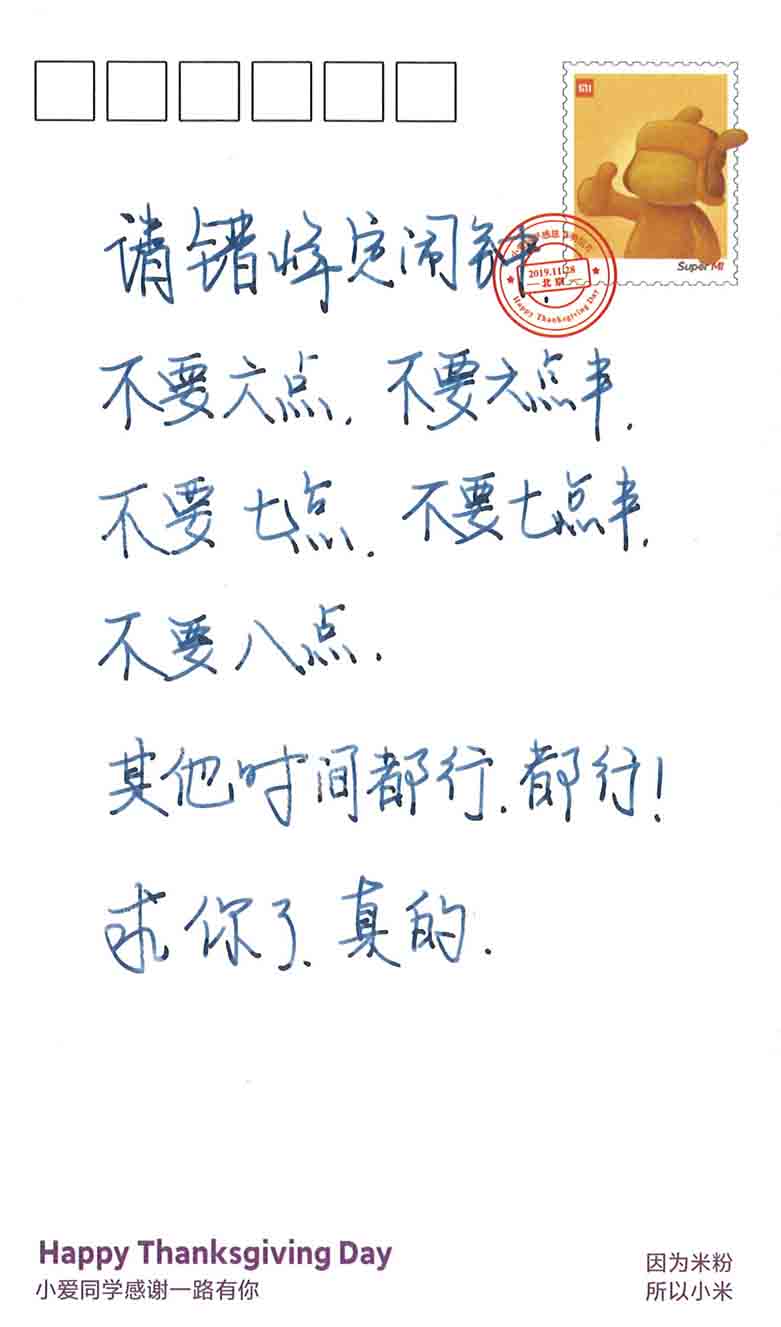 MI
Super MI
2019.11.28
北京
Happy Thanksgiving Day
请错峰定闹钟.
不要六点. 不要六点半.
不要七点. 不要七点半.
不要八点.
其他时间都行. 都行!
求你了. 真的.
Happy Thanksgiving Day
小爱同学感谢一路有你
因为米粉
所以小米